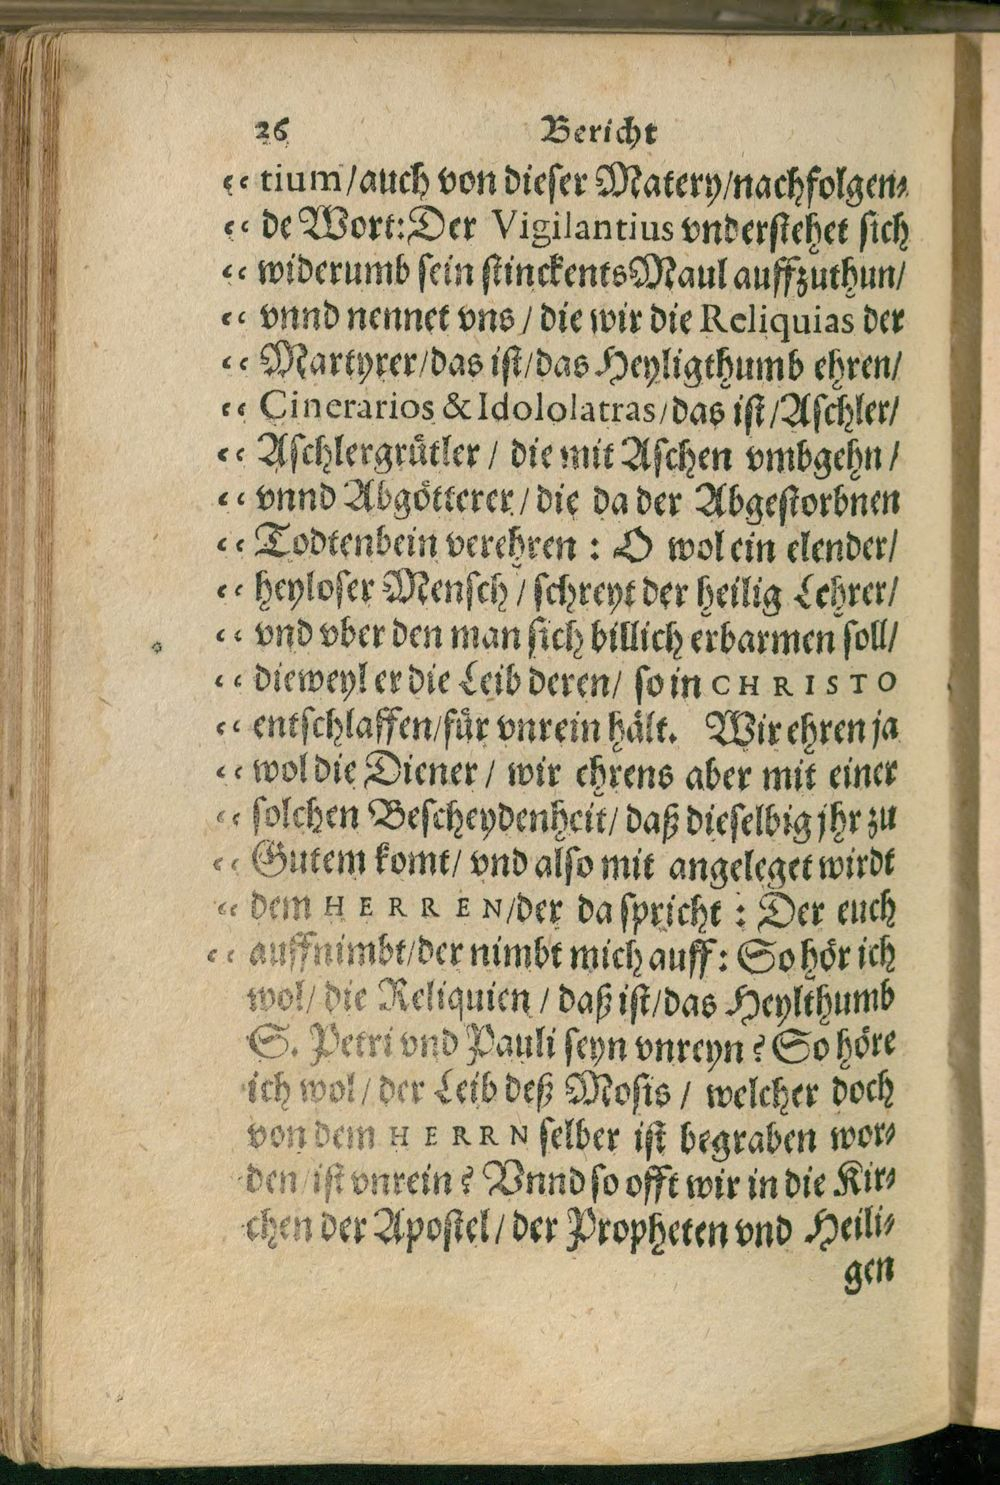 26 Bericht
“ tium/auch von dieser Matery/nachfolgen⸗
“ de Wort: Der Vigilantius vnderstehet sich
“ widerumb sein stinckents Maul auffzuthun/
“ vnnd nennet vns / die wir die Reliquias der
“ Martyrer/das ist/das Heyligthumb ehren/
“ Cinerarios & Idololatras/das ist/Aschler/
“ Aschlergrütler / die mit Aschen vmbgehn /
“ vnnd Abgötterer / die da der Abgestorbnen
“ Todtenbein verehren : O wol ein elender/
“ heyloser Mensch / schreyt der heilig Lehrer/
“ vnd vber den man sich billich erbarmen soll/
“ dieweyl er die Leib deren/ so in CHRISTO
“ entschlaffen/für vnrein hält. Wir ehren ja
“ wol die Diener / wir ehrens aber mit einer
“ solchen Bescheydenheit/ daß dieselbig jhr zu
“ Gutem komt/ vnd also mit angeleget wirdt
“ dem HERREN/der da spricht : Der euch
“ auffnimbt/der nimbt mich auff: So hör ich
wol/ die Reliquien / daß ist/das Heylthumb
S. Petri vnd Pauli seyn vnreyn? So höre
ich wol/ der Leib deß Mosis / welcher doch
von dem HERRN selber ist begraben wor⸗
den/ist vnrein? Vnnd so offt wir in die Kir⸗
chen der Apostel/ der Propheten vnd Heili⸗
gen